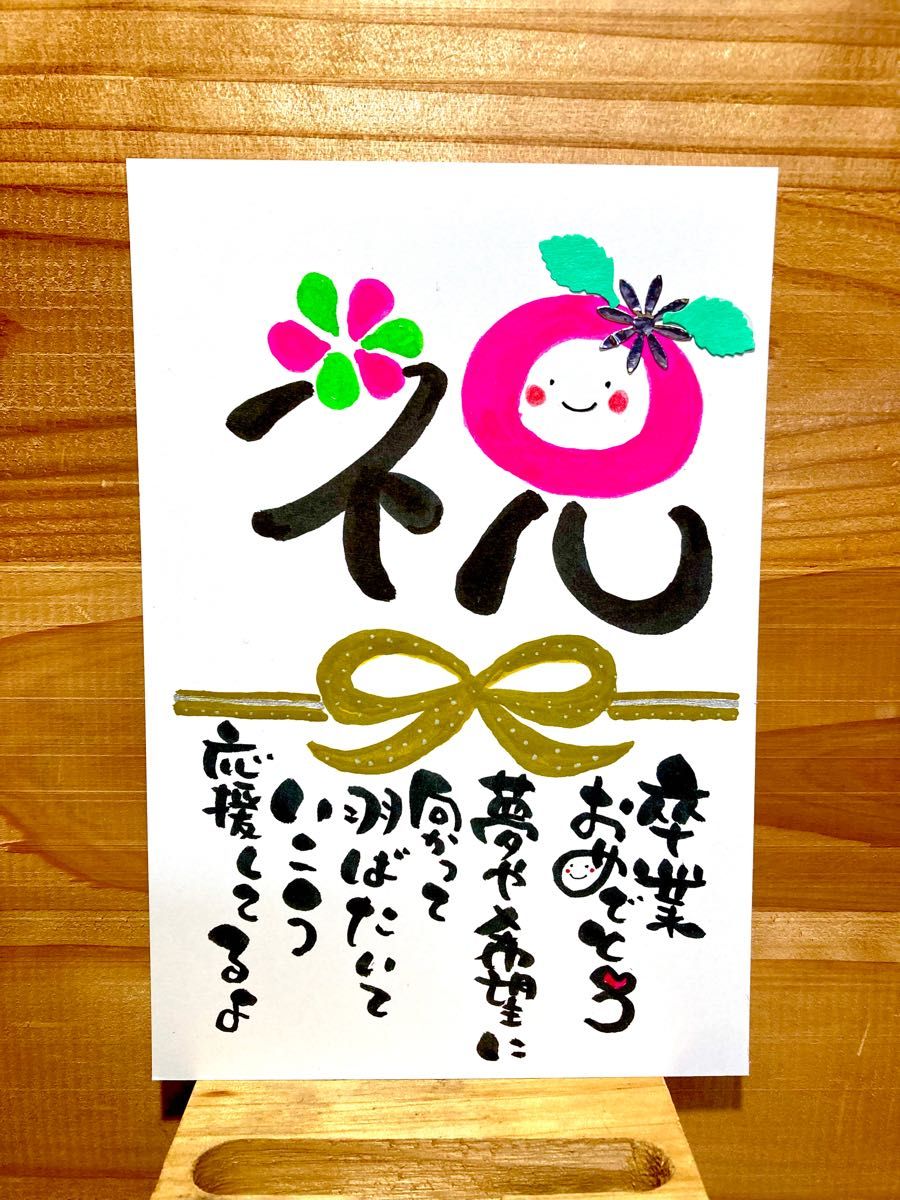 祝
卒業
おめでとう
夢や希望に
向かって
羽ばたいて
いこう
応援してるよ